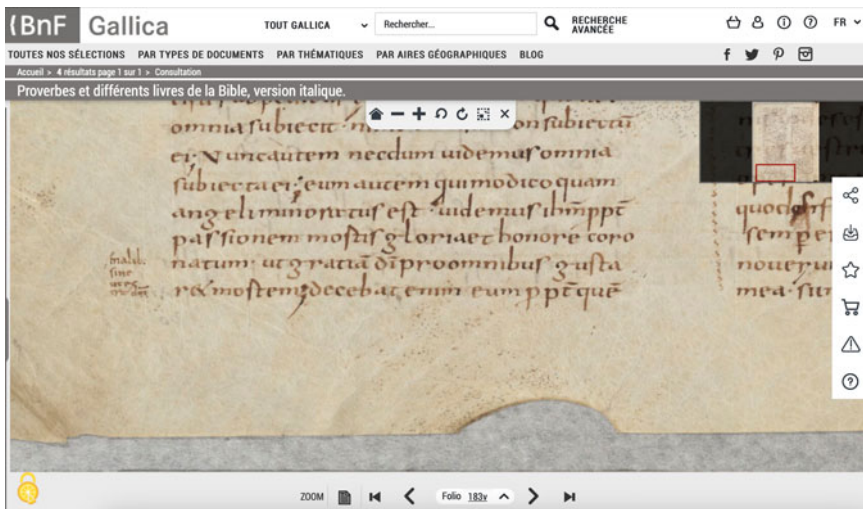 (BnF Gallica
TOUT GALLICA
Rechercher...
RECHERCHE AVANCÉE
FR
TOUTES NOS SÉLECTIONS PAR TYPES DE DOCUMENTS PAR THÉMATIQUES PAR AIRES GÉOGRAPHIQUES BLOG
Accueil > 4 résultats page 1 sur 1 > Consultation
Proverbes et différents livres de la Bible, version italique.
omnia subiecit on subiectū
ei· Nunc autem necdum uidemus omnia
subiecta ei; eum autem qui modico quam
angeli minoratus est · uidemus ihm̄ ppt̄
passionem mortis gloria et honorē coro
natum · ut gratiā dī pro omnibus gusta
ret mortem; decebat enim eum ppt̄ quē
In alib.
sine
quod
semper
mea · sun
ZOOM
Folio 183v